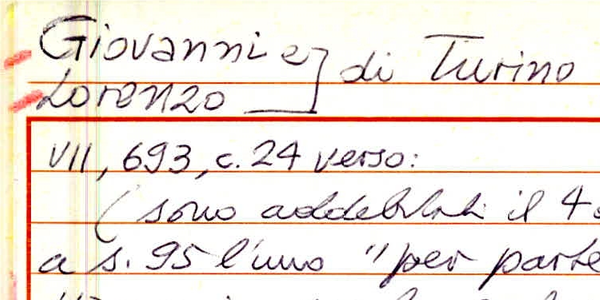 Giovanni e] di Turino
Lorenzo
VII, 693, c. 24 verso:
(sono addebitati il 4
a s. 95 l'uno "per parte